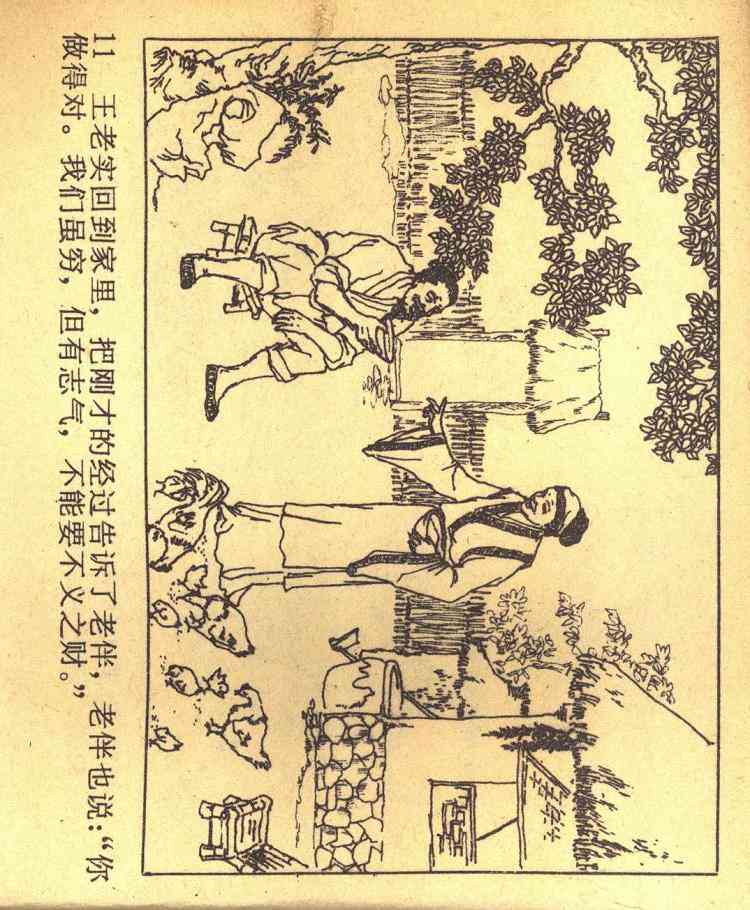 11 王老实回到家里，把刚才的经过告诉了老伴，老伴也说：“你
做得对。我们虽穷，但有志气，不能要不义之财。”